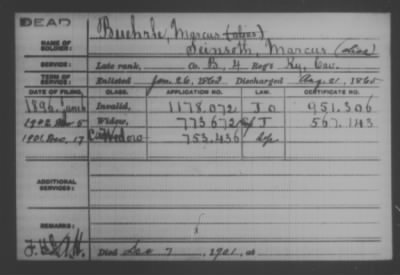 DEAD
NAME OF SOLDIER: Buehrle, Marcus (alias)
Seinsoth, Marcus (alias)
SERVICE: Late rank, Co. B, 4 Reg't Ky. Cav.
TERM OF SERVICE: Enlisted Jan. 26, 1862 Discharged Aug. 21, 1865
DATE OF FILING. CLASS. APPLICATION NO. LAW. CERTIFICATE NO.
1896 Invalid, 1178.072 951.306
1902 5 Widow, 773672 J 567.143
1901 Dec. 17 Widow 753.436
ADDITIONAL SERVICES:
REMARKS:
Died Dec 7, 1901, at